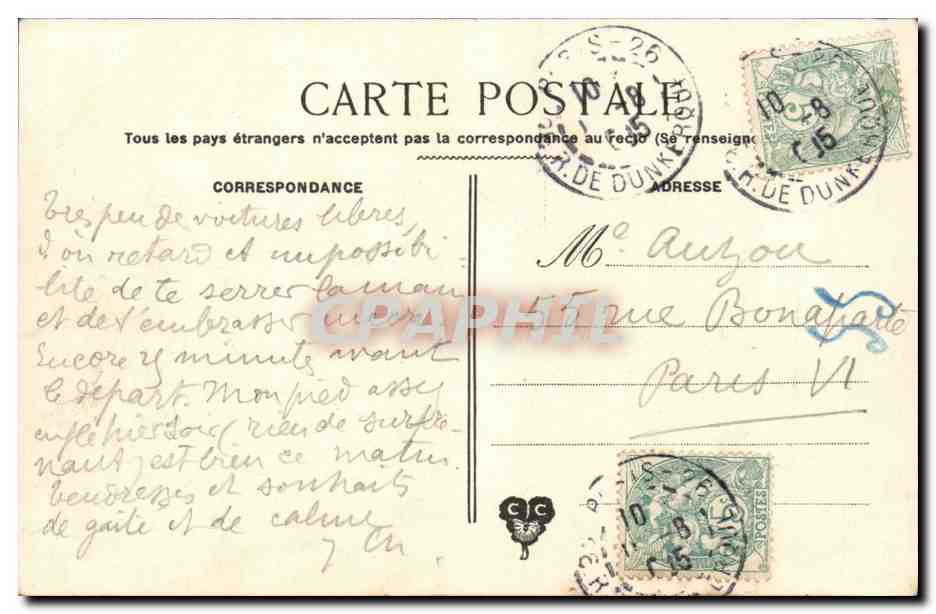 CARTE POSTALE
Tous les pays étrangers n'acceptent pas la correspondance au recto (Se renseigne
CORRESPONDANCE
ADRESSE
très peu de voitures libres,
d'où retard et impossibi-
lité de te serrer la main
et de t'embrasser
Encore 25 minutes avant
le départ. Mon pied assez
enflé hier soir (rien de surpre-
nant) est bien ce matin.
tendresses et souhaits
de gaité et de calme
Me Auzou
55 rue Bonaparte
Paris VI
PARIS - 26
R. DE DUNKERQUE
10 -8
05
26
10 -8
05
R. DE DUNKERQUE
CPAPHIL
C C
PARIS - 26
10 -8
05
POSTES